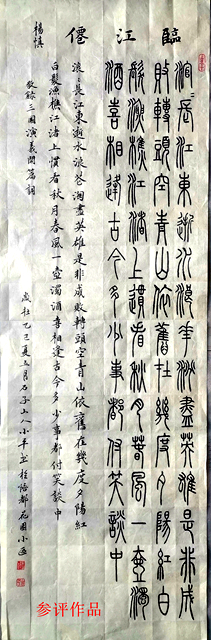 臨江僊
滚〻長江東逝水浪花淘盡英雄是非成
敗轉頭空青山依舊在幾度夕陽紅白
髮漁樵江渚上慣看秋月春風一壺濁
酒喜相逢古今多少事都付笑談中
滚〻長江東逝水浪花淘盡英雄是非成敗轉頭空青山依舊在幾度夕陽紅
白髮漁樵江渚上慣看秋月春風一壺濁酒喜相逢古今多少事都付笑談中
楊慎
敬録三國演義開篇詞
歲在乙巳夏月石子山人小平書於怡都花園小區
参评作品